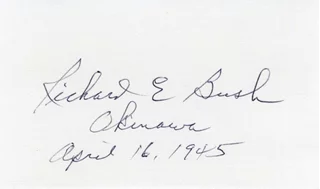 Richard E Bush
Okinawa
April 16, 1945